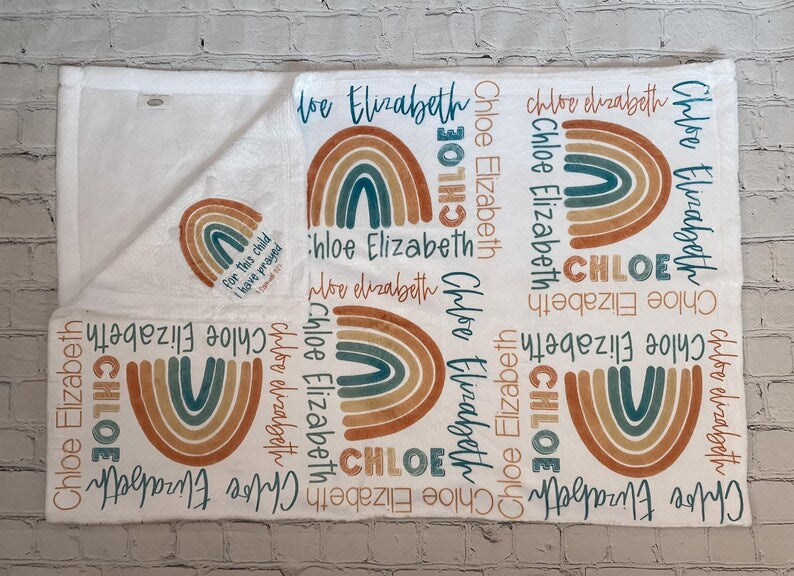 Chloe Elizabeth
CHLOE
Chloe Elizabeth
Chloe Elizabeth
chloe elizabeth
Chloe Elizabeth
Chloe Elizabeth
CHLOE
Chloe Elizabeth
for this child
I have prayed
chloe elizabeth
Chloe Elizabeth
Chloe Elizabeth
CHLOE
Chloe Elizabeth
Chloe Elizabeth
Chloe Elizabeth
CHLOE
chloe elizabeth
Chloe Elizabeth
Chloe Elizabeth
Chloe Elizabeth
CHLOE
chloe elizabeth
Chloe Elizabeth